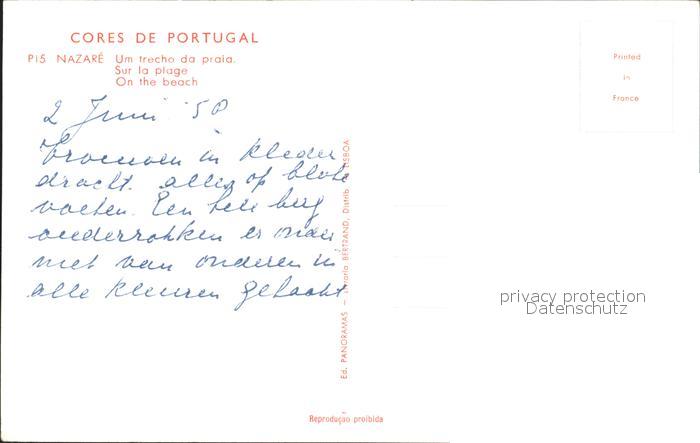 CORES DE PORTUGAL
P15 NAZARÉ Um trecho da praia.
Sur la plage
On the beach
Printed
in
France
2 Juni '50
Vrouwen in kleder
dracht. alles op blote
voeten. Een hele berg
onderrokken er onder
met van onderen in
alle kleuren gehaakt
Ed. PANORAMAS - Livraria BERTRAND, Distrib. LISBOA
privacy protection
Datenschutz
Reprodução proibida